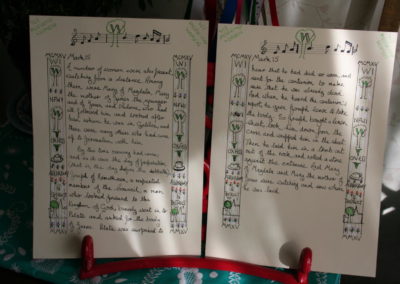 MCMXV
W
Mark 15
A number of women were also present,
watching from a distance. Among
them were Mary of Magdala, Mary
the mother of James the younger
and of Joses and Salome, who had
followed him and looked after
him when he was in Galilee, and
there were many others who had come
up to Jerusalem with him.
By this time evening had come;
and as it was the day of preparation
(that is, the day before the sabbath),
Joseph of Arimathaea, a respected
member of the Council, a man
who looked forward to the
kingdom of God, bravely went in to
Pilate and asked for the body
of Jesus. Pilate was surprised to
MMXV
MCMXV
W
Mark 15
hear that he had died so soon, and
sent for the centurion to make
sure that he was already dead.
And when he heard the centurion's
report, he gave Joseph leave to take
the body. So Joseph bought a linen
sheet, took him down from the
cross, and wrapped him in the sheet.
Then he laid him in a tomb cut
out of the rock, and rolled a stone
against the entrance. And Mary
of Magdala and Mary the mother of
Joses were watching and saw where
he was laid.
MMXV